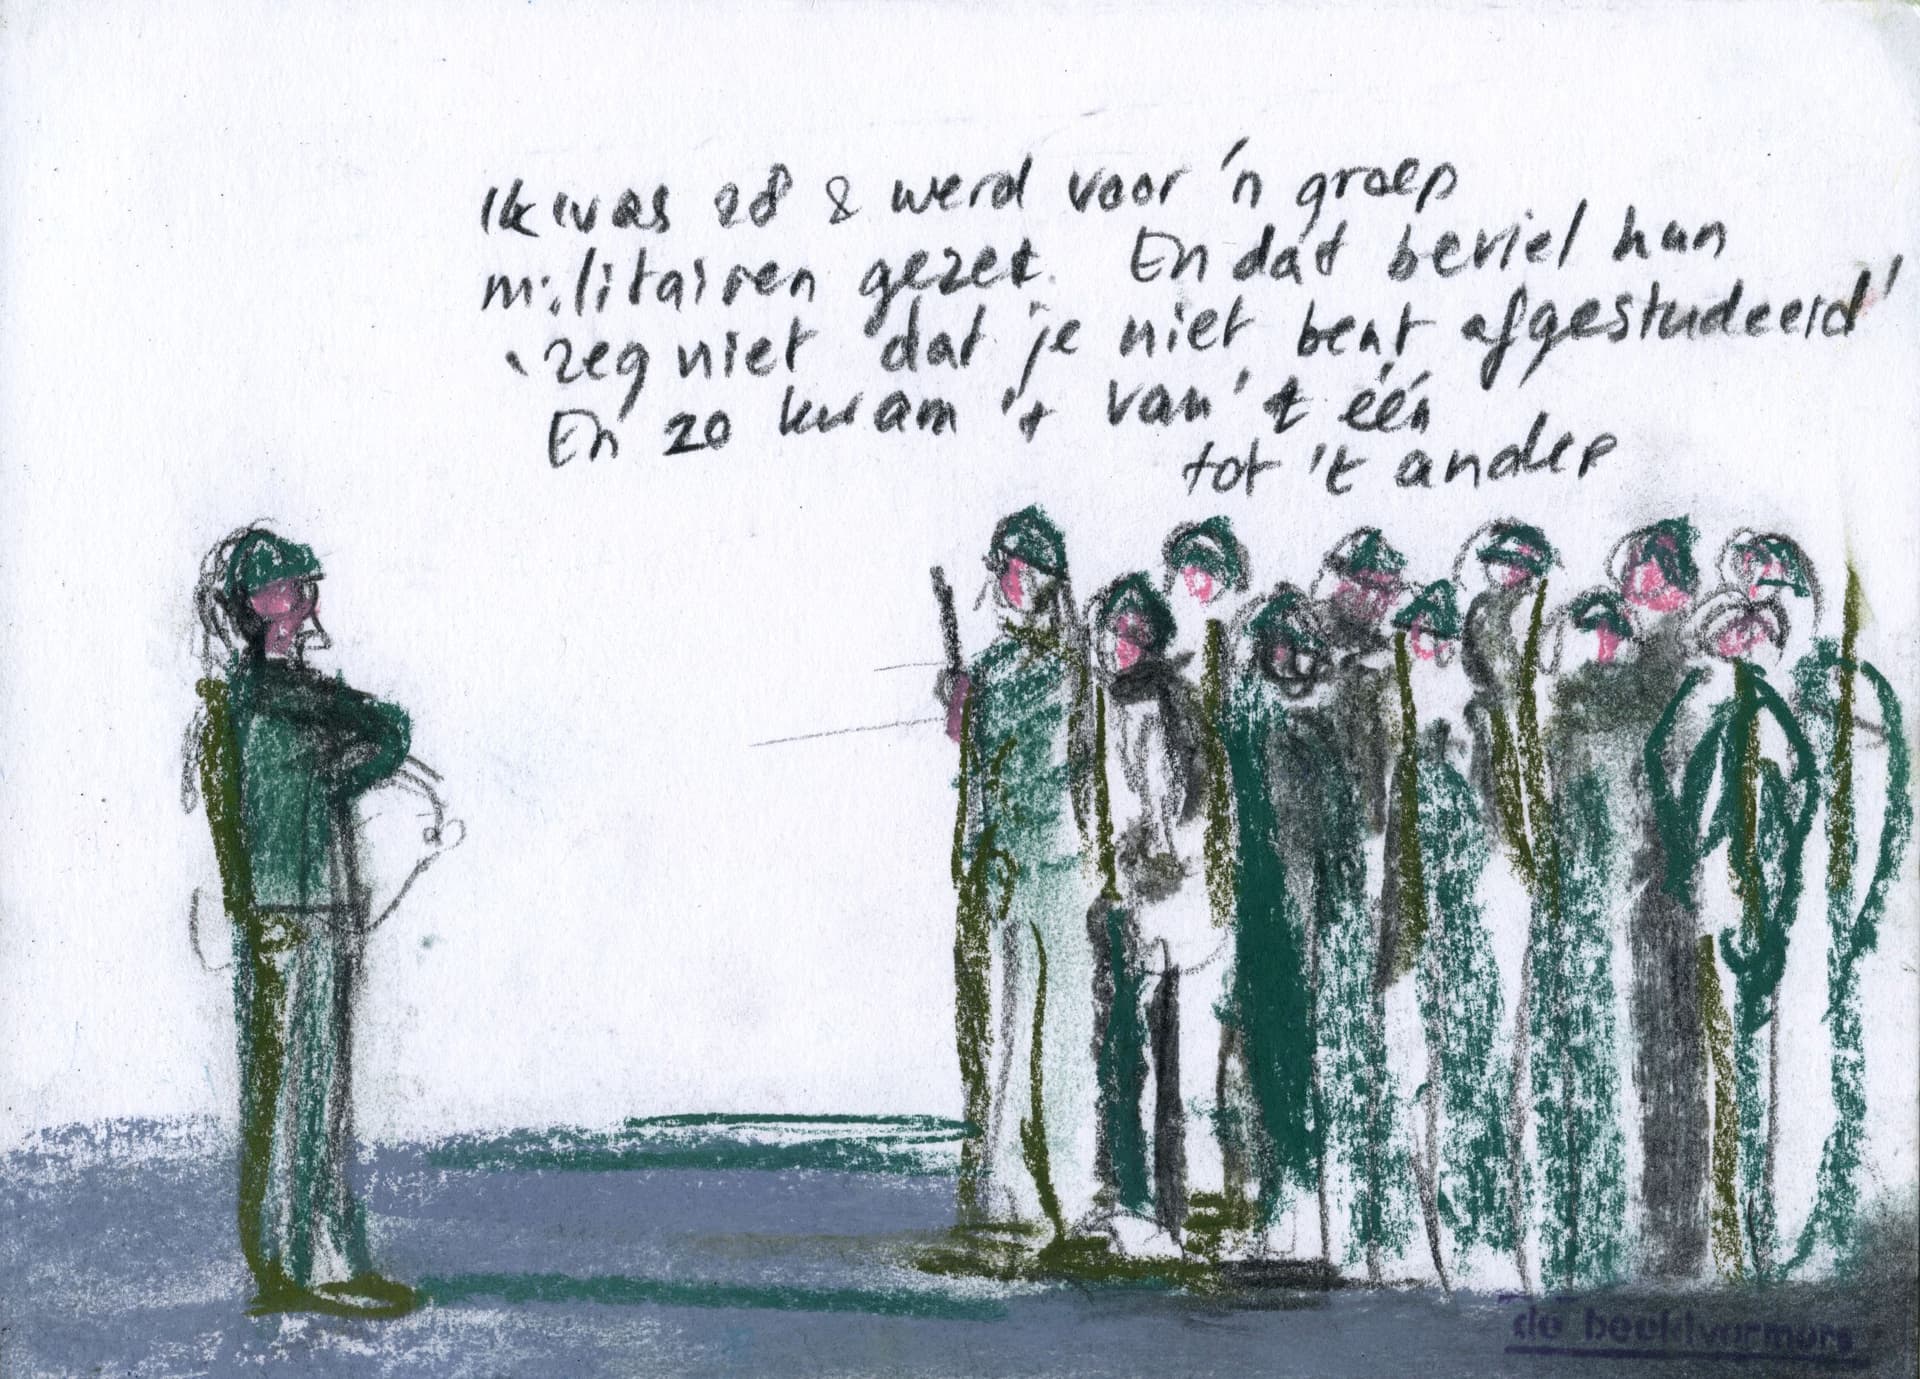 Ik was 28 & werd voor 'n groep
militairen gezet. En dat beviel hun
'zeg niet dat je niet bent afgestudeerd'
En zo kwam 't van 't één
tot 't ander
de beeldvormers